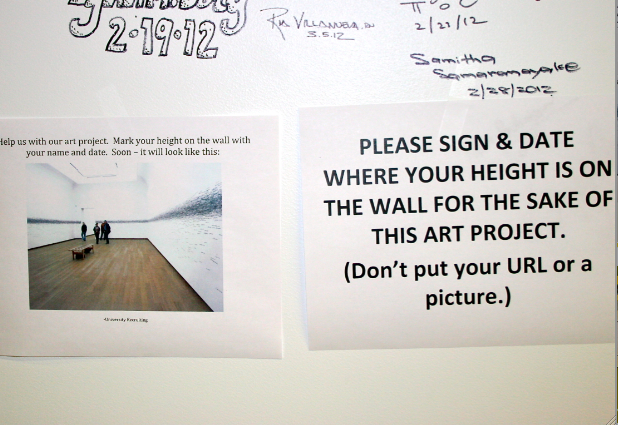 2·19·12
3.5.12
2/21/12
Samitha
Samaramayake
2/28/2012
Help us with our art project. Mark your height on the wall with
your name and date. Soon – it will look like this:
PLEASE SIGN & DATE
WHERE YOUR HEIGHT IS ON
THE WALL FOR THE SAKE OF
THIS ART PROJECT.
(Don't put your URL or a
picture.)